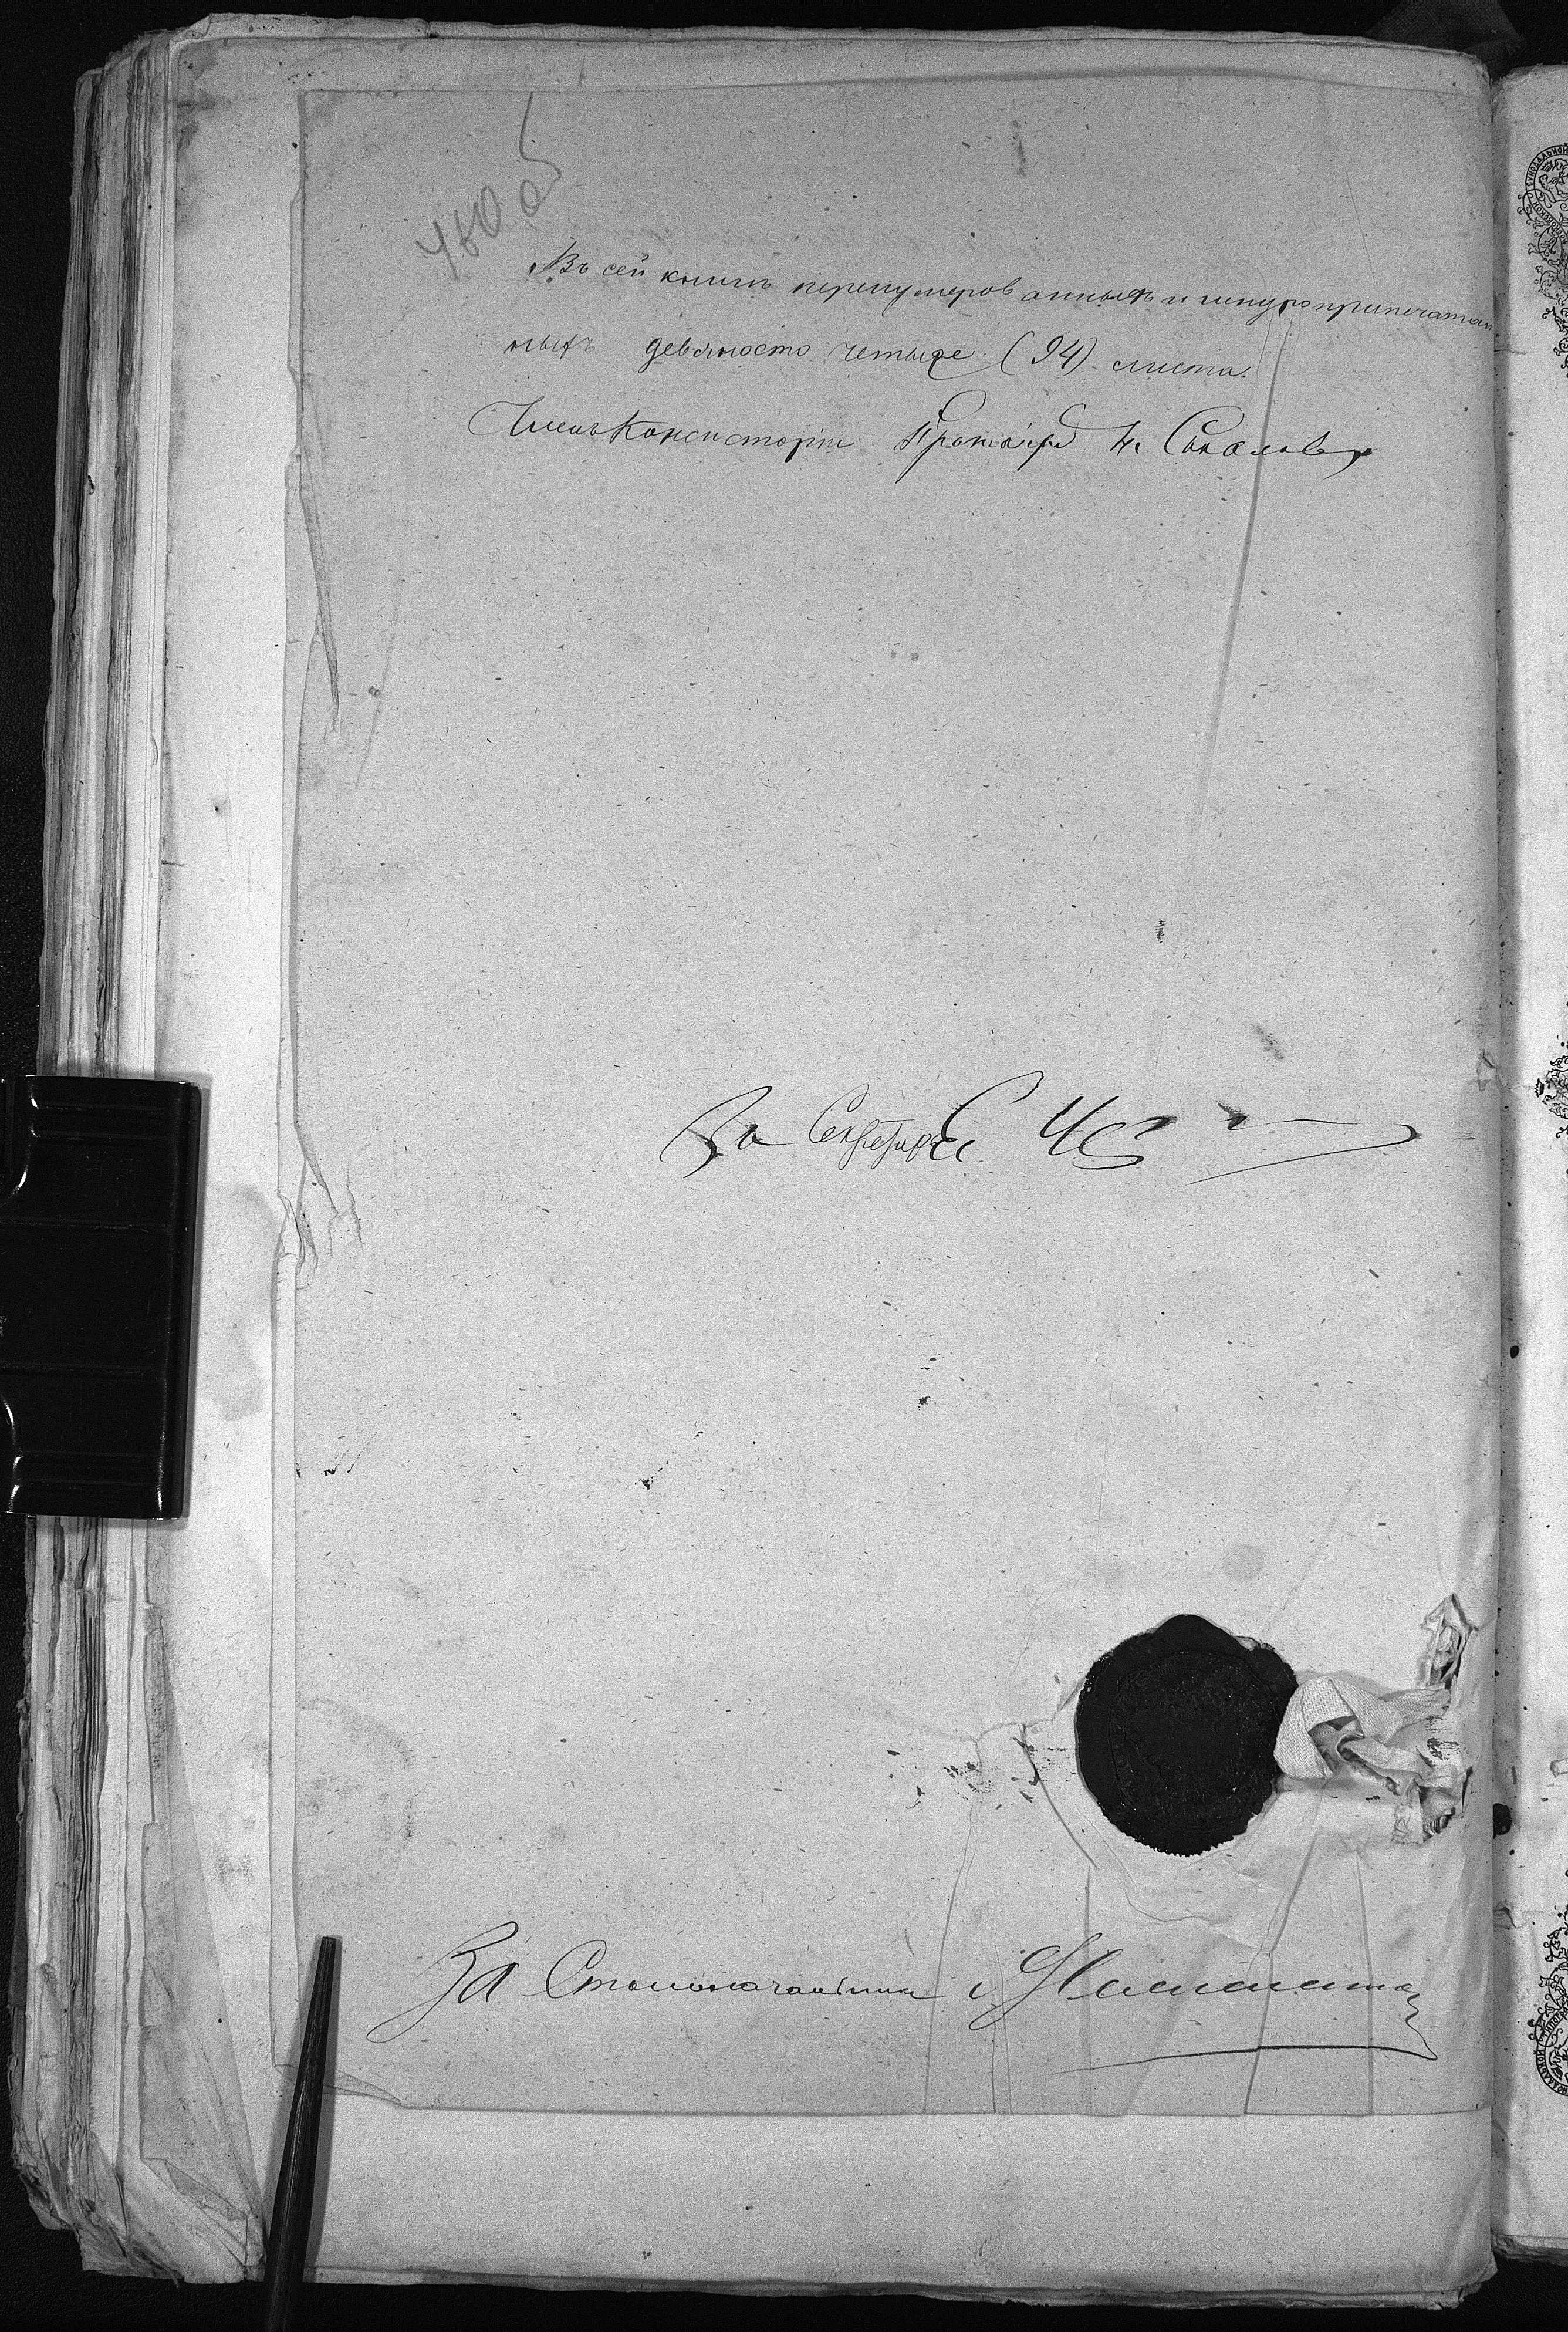 480 об
Въ сей книгѣ перенумерованныхъ и шнуроприпечатан
ныхъ девяносто четыре (94) листа.
Членъ Консисторіи Протоіерей Н. Соколовъ
За Секретаря
За Столоначальника